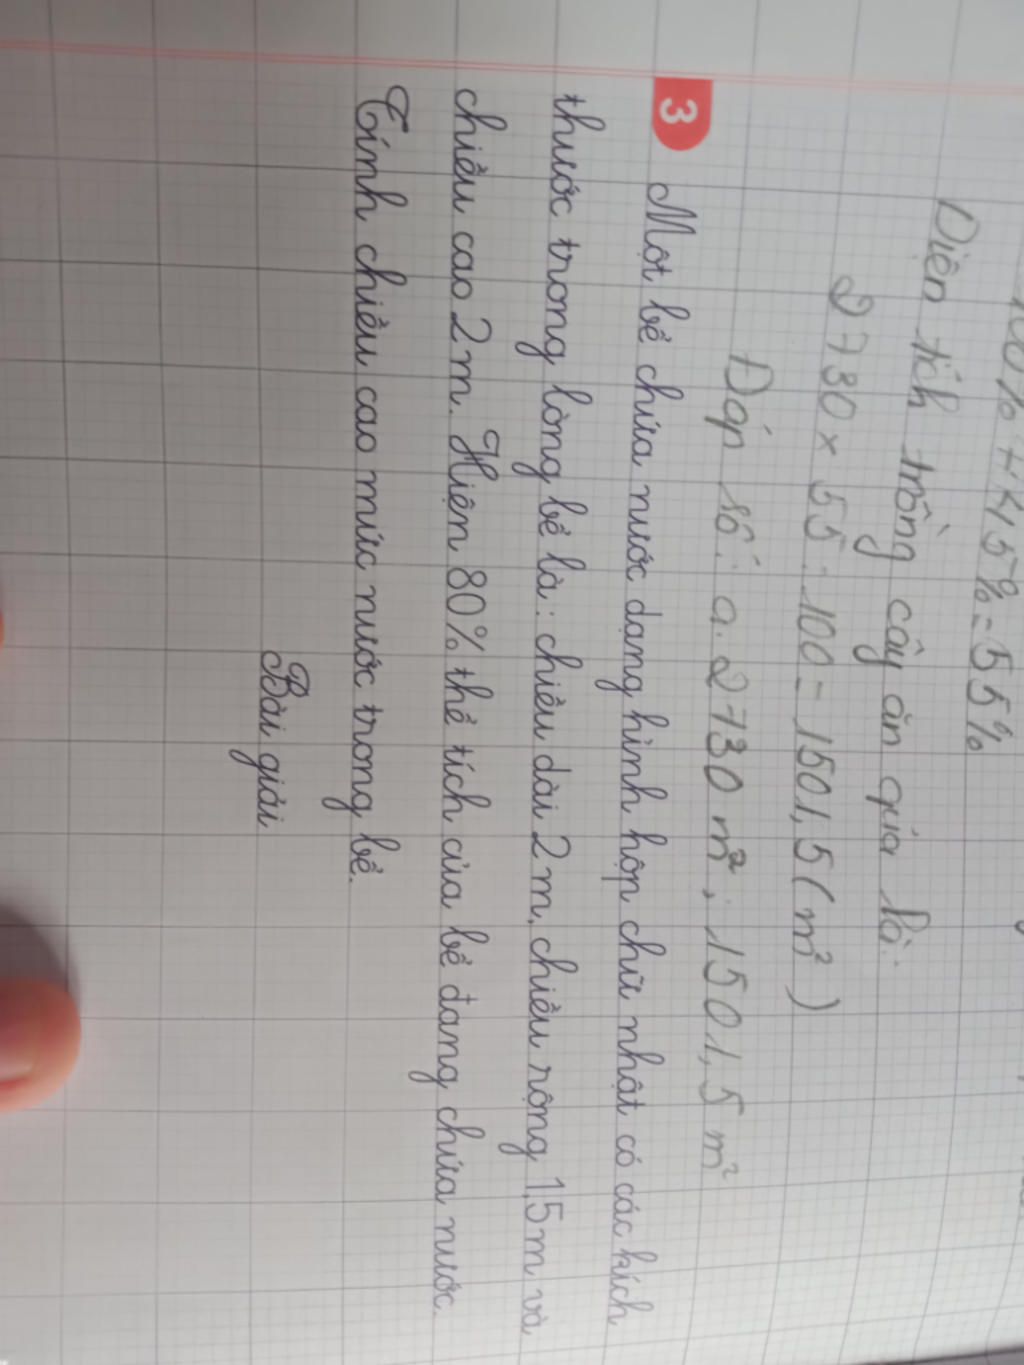 100% + 4,5% = 55%
Diện tích trồng cây ăn quả là:
2730 × 55 : 100 = 1501,5 (m²)
Đáp số: a. 2730 m²; 1501,5 m²
3 Một bể chứa nước dạng hình hộp chữ nhật có các kích
thước trong lòng bể là: chiều dài 2 m, chiều rộng 1,5 m và
chiều cao 2 m. Hiện 80% thể tích của bể đang chứa nước.
Tính chiều cao mức nước trong bể.
Bài giải